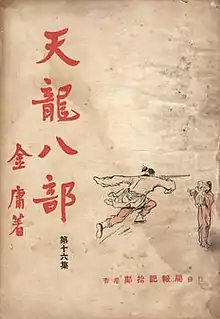 天龍八部
金庸著
第十六集
香港 鄺拾記報局